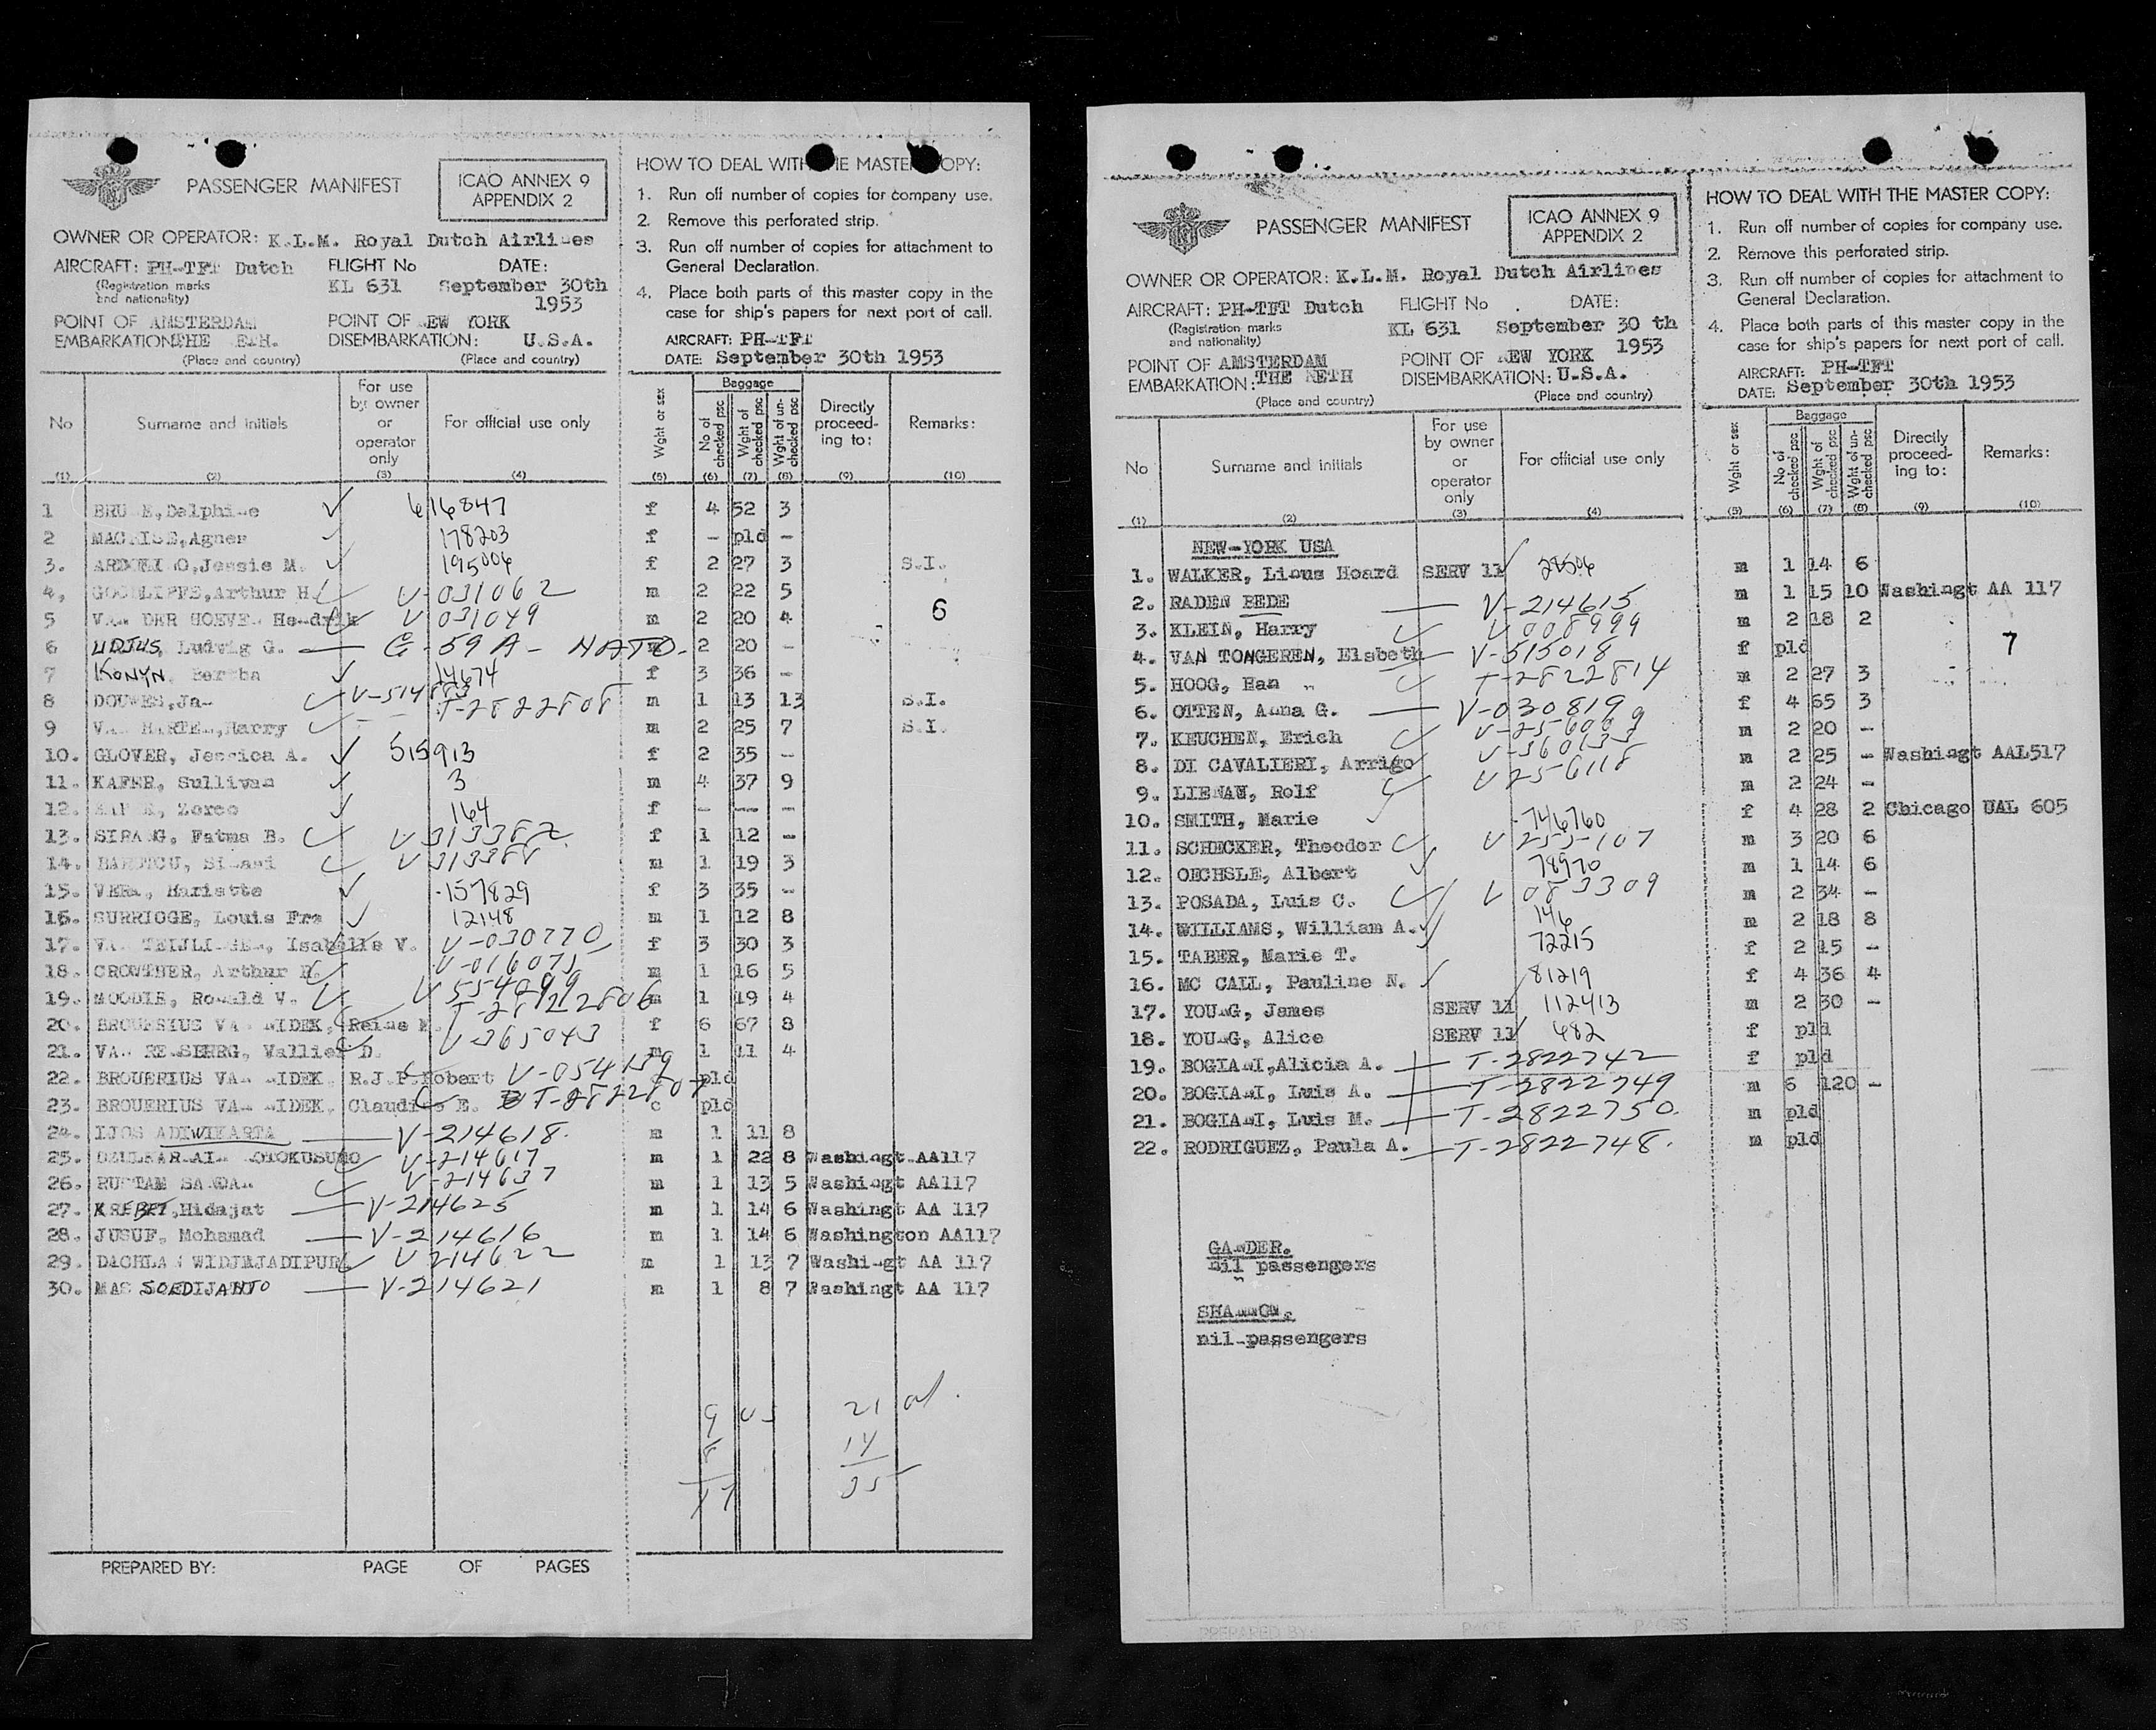 PASSENGER MANIFEST
ICAO ANNEX 9
APPENDIX 2
OWNER OR OPERATOR: K.L.M. Royal Dutch Airlines
AIRCRAFT: PH-TFT Dutch FLIGHT No DATE:
(Registration marks KL 631 September 30th
and nationality) 1953
POINT OF AMSTERDAM POINT OF NEW YORK
EMBARKATION: THE NETH. DISEMBARKATION: U.S.A.
(Place and country) (Place and country)
HOW TO DEAL WITH THE MASTER COPY:
1. Run off number of copies for company use.
2. Remove this perforated strip.
3. Run off number of copies for attachment to
General Declaration.
4. Place both parts of this master copy in the
case for ship's papers for next port of call.
AIRCRAFT: PH-TFT
DATE: September 30th 1953
No Surname and initials For use by owner or operator only For official use only Wght or sex Baggage No of checked psc Wght of checked psc Wght of un-checked psc Directly proceed-ing to: Remarks:
(1) (2) (3) (4) (5) (6) (7) (8) (9) (10)
1 Delphine ✓ 616847 f 4 52 3
2 Agnes ✓ 178203 f - pld -
3. Jessie M. ✓ 195006 f 2 27 3 S.I.
4, Arthur H. ✓ V-031062 m 2 22 5
5 VAN DER HOEVEN Hendrik ✓ V 031049 m 2 20 4 6
6 UDJUS, Ludvig G. — G-59A - NATO - 2 20 -
7 KONYN, Bertha ✓ 14674 f 3 36 -
8 DOUWES, Jan ✓ V-514883 T-2822808 m 1 13 13 S.I.
9 Harry ✓ m 2 25 7 S.I.
10. GLOVER, Jessica A. ✓ 515913 f 2 35 -
11. KAFER, Sullivan ✓ 3 m 4 37 9
12. Zorec ✓ 164 f - -- --
13. SIRANG, Fatma B. ✓ V 313382 f 1 12 -
14. ✓ V 313388 m 1 19 3
15. VERA, Mariette ✓ 157829 f 3 35 -
16. SURRIOGE, Louis Fra ✓ 12148 m 1 12 8
17. VAN TEIJLINGEN, Isabelle V. V-030770 f 3 30 3
18. CROWTHER, Arthur ✓ V-016075 m 1 16 5
19. MOODIE, Ronald V. ✓ V 554099 m 1 19 4
20. BROUERIUS VAN NIDEK, Reine M. T-2822806 f 6 67 8
21. VAN RENSBERG, D. V-365043 m 1 11 4
22. BROUERIUS VAN NIDEK, R.J.P.Robert V-054159 c pld
23. BROUERIUS VAN NIDEK, Claudine E. T-2822807 c pld
24. IJOS ADIWIKARTA — V-214618. m 1 11 8
25. V-214617 m 1 22 8 Washingt AA117
26. RUSTAM SANDAN ✓ V-214637 m 1 13 5 Washingt AA117
27. KREBET, Hidajat — V-214625 m 1 14 6 Washingt AA 117
28. JUSUF, Mohamad — V-214616 m 1 14 6 Washington AA117
29. DACHLAN WIDJAJADIPURA ✓ V 214622 m 1 13 7 Washingt AA 117
30. MAS SOEDIJANTO — V-214621 m 1 8 7 Washingt AA 117
9 US 21 al.
8 14
17 35
PREPARED BY: PAGE OF PAGES
PASSENGER MANIFEST
ICAO ANNEX 9
APPENDIX 2
OWNER OR OPERATOR: K.L.M. Royal Dutch Airlines
AIRCRAFT: PH-TFT Dutch FLIGHT No DATE:
(Registration marks KL 631 September 30 th
and nationality) 1953
POINT OF AMSTERDAM POINT OF NEW YORK
EMBARKATION: THE NETH DISEMBARKATION: U.S.A.
(Place and country) (Place and country)
HOW TO DEAL WITH THE MASTER COPY:
1. Run off number of copies for company use.
2. Remove this perforated strip.
3. Run off number of copies for attachment to
General Declaration.
4. Place both parts of this master copy in the
case for ship's papers for next port of call.
AIRCRAFT: PH-TFT
DATE: September 30th 1953
No Surname and initials For use by owner or operator only For official use only Wght or sex Baggage No of checked psc Wght of checked psc Wght of un-checked psc Directly proceed-ing to: Remarks:
(1) (2) (3) (4) (5) (6) (7) (8) (9) (10)
NEW-YORK USA
1. WALKER, Linus Hoard SERV 11 ✓ 28506 m 1 14 6
2. RADEN BEDE — V-214615 m 1 15 10 Washingt AA 117
3. KLEIN, Harry ✓ V 008999 m 2 18 2
4. VAN TONGEREN, Elsbeth V-515018 f pld 7
5. HOOG, Han ✓ T-2822814 m 2 27 3
6. OTTEN, Anna G. — V-030819 f 4 65 3
7. KEUCHEN, Erich ✓ V-256009 m 2 20 -
8. DI CAVALIERI, Arrigo ✓ V-360133 m 2 25 - Washingt AAL517
9. LIENAU, Rolf ✓ V 256118 m 2 24 -
10. SMITH, Marie ✓ 746760 f 4 28 2 Chicago UAL 605
11. SCHECKER, Theodor ✓ V 255-107 m 3 20 6
12. OECHSLE, Albert ✓ 78970 m 1 14 6
13. POSADA, Luis C. ✓ V 083309 m 2 34 -
14. WILLIAMS, William A. ✓ 146 m 2 18 8
15. TABER, Marie T. 72215 f 2 15 -
16. MC CALL, Pauline N. ✓ 81219 f 4 36 4
17. YOUNG, James SERV 11 112413 m 2 30 -
18. YOUNG, Alice SERV 11 ✓ 482 f pld
19. BOGIANI, Alicia A. — T-2822742 f pld
20. BOGIANI, Luis A. — T-2822749 m 6 120 -
21. BOGIANI, Luis M. — T-2822750. m pld
22. RODRIGUEZ, Paula A. — T-2822748. m pld
GANDER.
nil passengers
SHANNON.
nil-passengers
PREPARED BY: PAGE OF PAGES